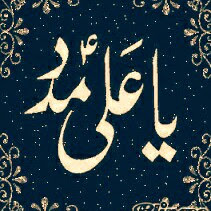 یا علیؑ مدد